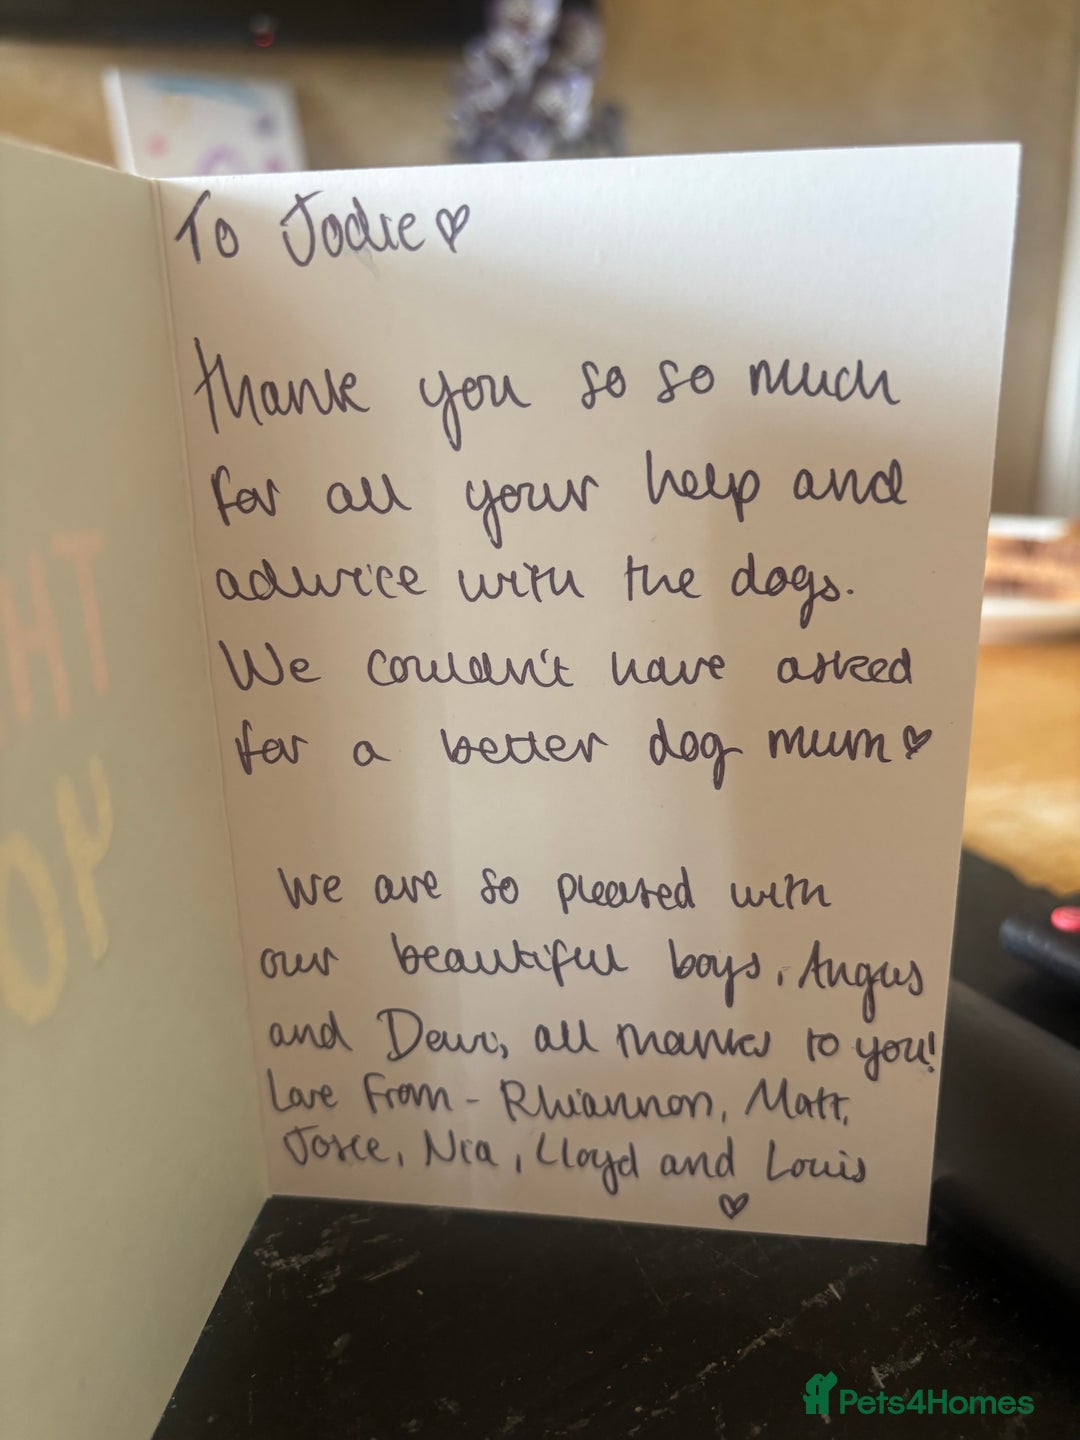 To Jodie ♡
Thank you so so much
for all your help and
advice with the dogs.
We couldn't have asked
for a better dog mum ♡
We are so pleased with
our beautiful boys, Angus
and Dewi, all thanks to you!
Love From - Rhiannon, Matt,
Josie, Nia, Lloyd and Louis
♡
HT
OY
Pets4Homes